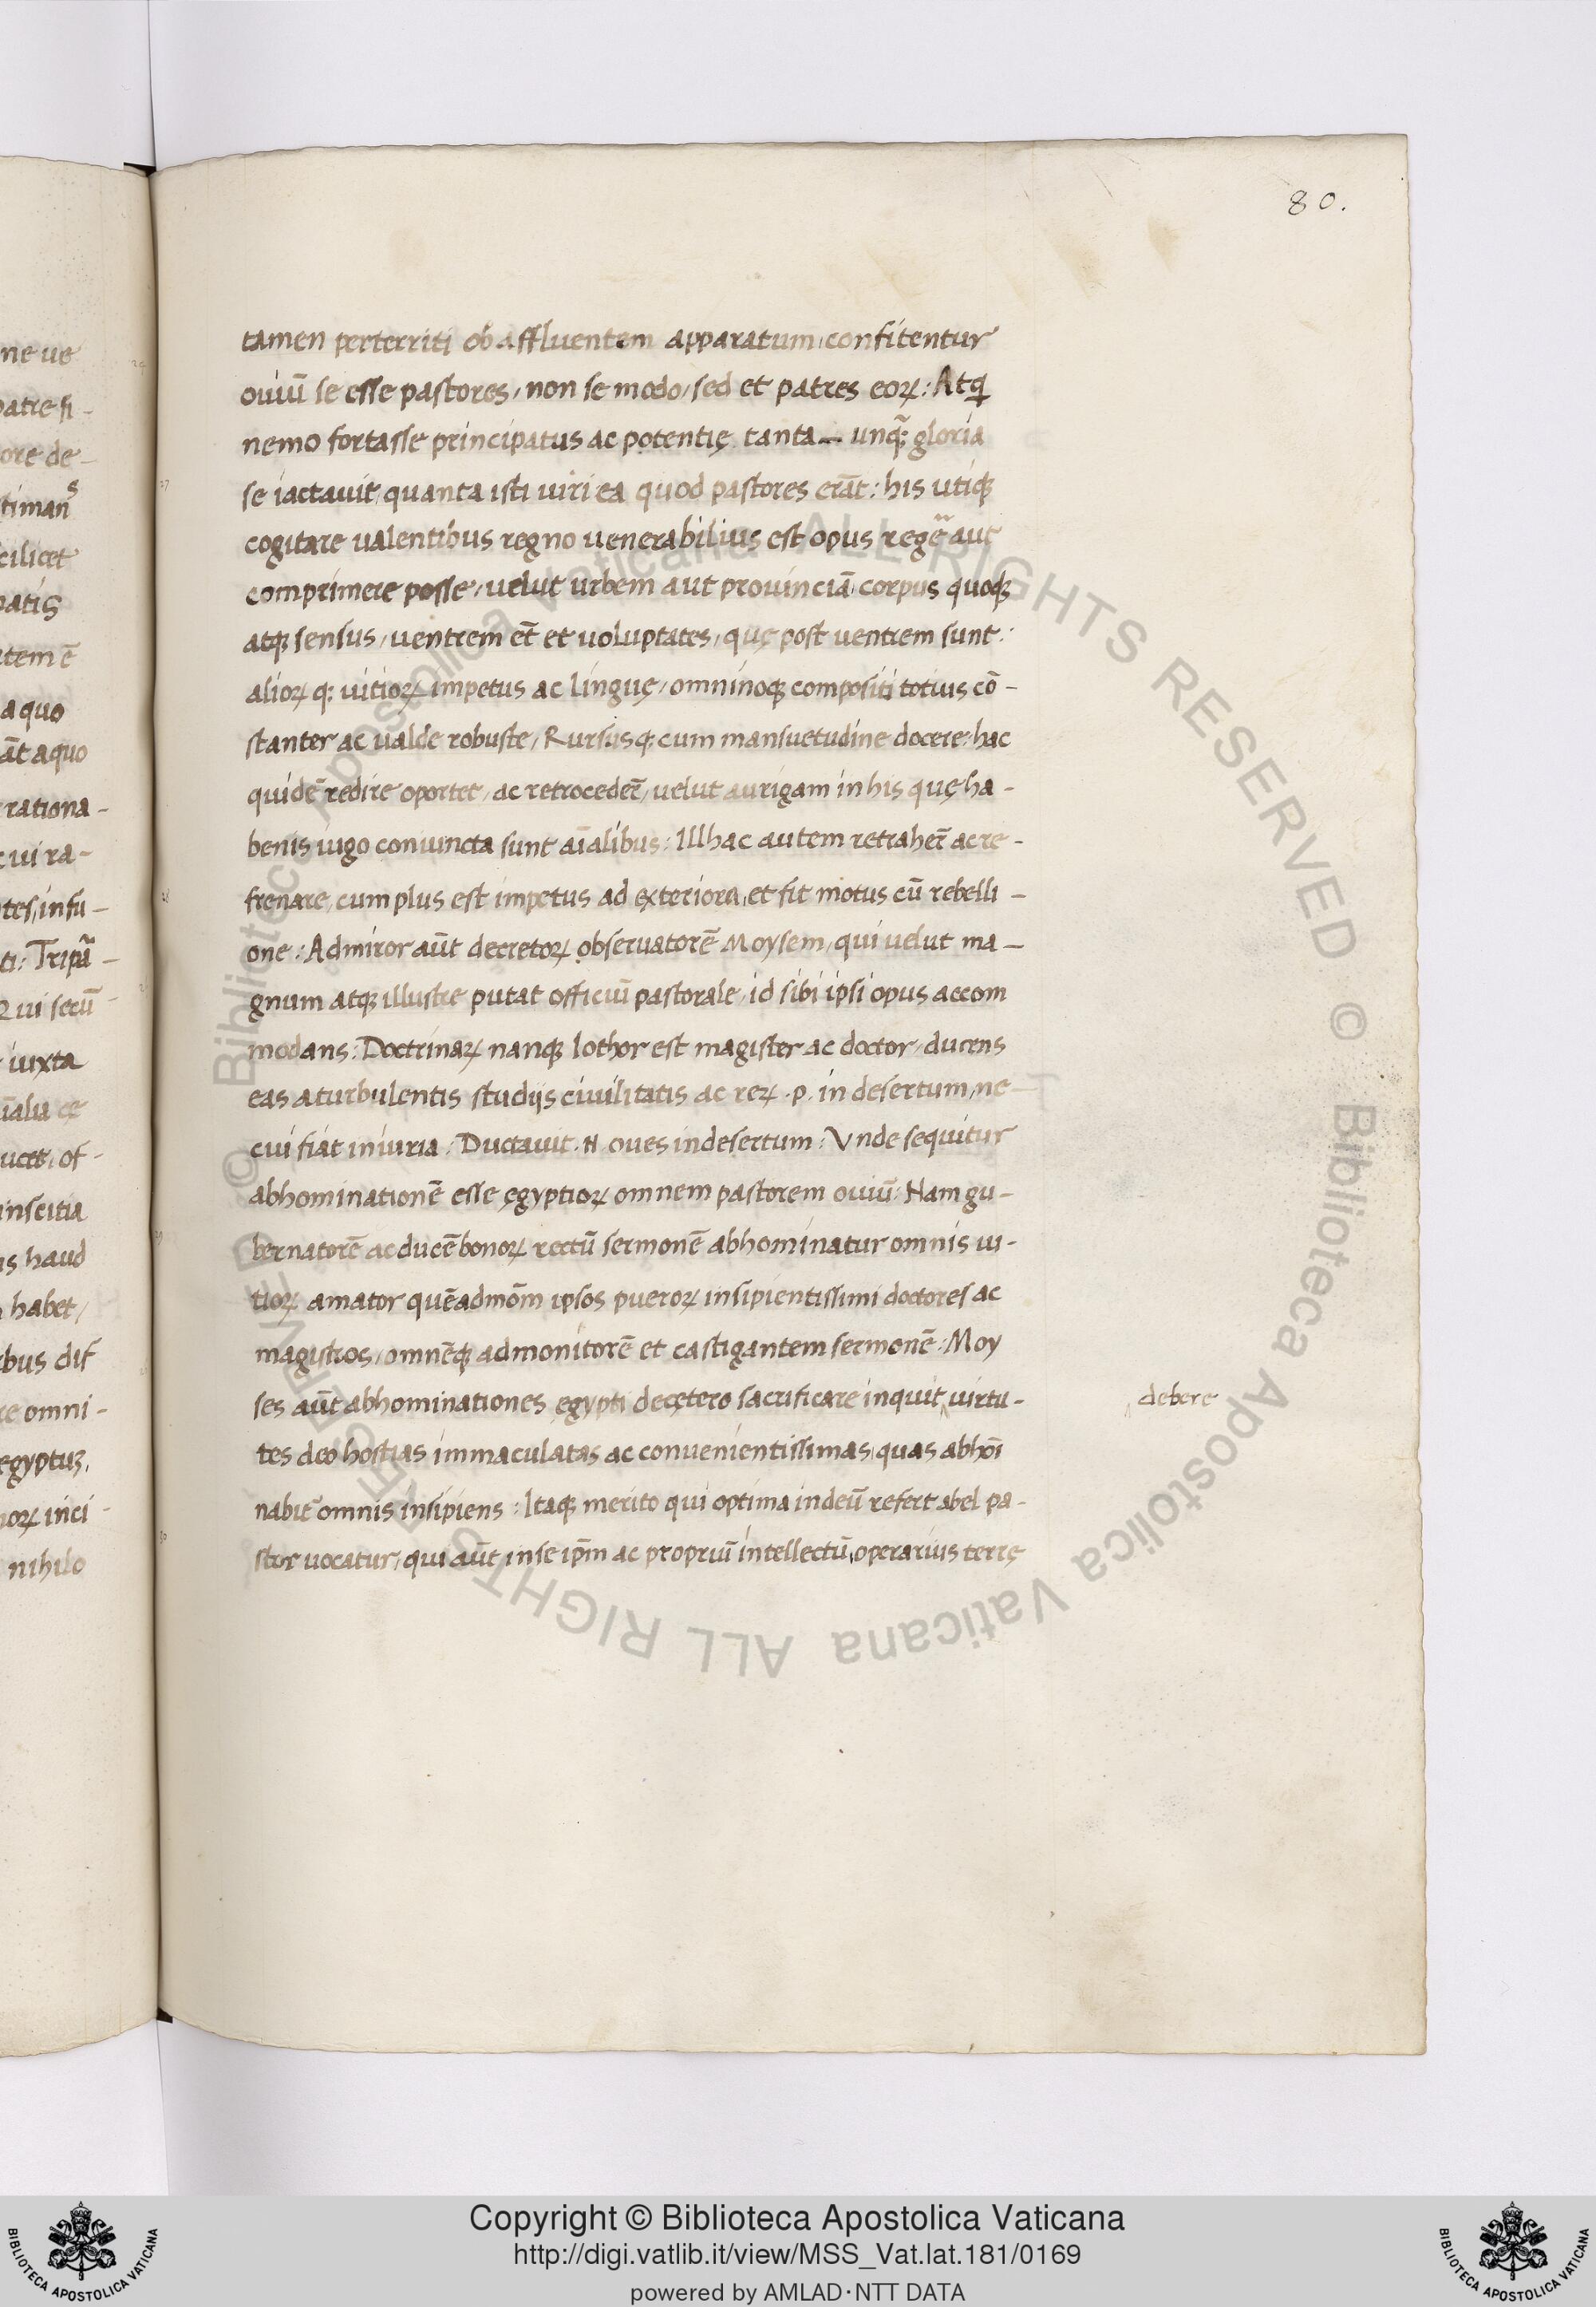 80.
ne ue
patre fi-
ore de-
stimans
cilicet
patis
atem ē
a quo
āt a quo
rationa-
cui ra-
tes, insu-
ti: Tripā-
Qui secū
iuxta
ucet, of-
inscitia
is haud
habet,
bus dif
re omni-
egyptuʒ,
norꝝ inci-
nihilo
tamen perterriti ob affluentem apparatum, confitentur
ouiū se esse pastores, non se modo, sed et patres eorꝝ: Atq
nemo fortasse principatus ac potentię tanta— unq̄ꝫ gloria
se iactauit, quanta isti uiri ea quod pastores erāt: his utiqꝫ
cogitare ualentibus regno uenerabilius est opus regē aut
comprimere posse, uelut urbem aut prouinciā, corpus quoqꝫ
atqꝫ sensus, uentrem et̄ et uoluptates, quę post uentrem sunt:
aliorꝝ qꝫ uitiorꝝ impetus ac linguę, omninoqꝫ compositi totius cō-
stanter ac ualde robuste, Rursusqꝫ cum mansuetudine docere: hac
quidē redire oportet, ac retrocederē, uelut aurigam in his quę ha-
benis iugo coniuncta sunt aīalibus: Illhac autem retraherē ac re-
frenare, cum plus est impetus ad exteriora, et fit motus cū rebelli-
one: Admiror aūt decretorꝝ obseruatorē Moysem, qui uelut ma-
gnum atqꝫ illustre putat officiū pastorale, id sibi ipsi opus accom
modans: Doctrinarꝝ nanqꝫ Iothor est magister ac doctor, ducens
eas a turbulentis studijs ciuilitatis ac rerꝝ .p. in desertum, ne
cui fiat iniuria: Ductauit .N. oues in desertum: Vnde sequitur
abhominationē esse ęgyptiorꝝ omnem pastorem ouiū: Nam gu-
bernatorē ac ducē bonorꝝ rectū sermonē abhominatur omnis ui-
tiorꝝ amator quēadmōm ipsos puerorꝝ insipientissimi doctores ac
magistros, omnēqꝫ admonitorē et castigantem sermonē: Moy
ses aūt abhominationes ęgypti decętero sacrificare inquit, uirtu-
debere
tes deo hostias immaculatas ac conuenientissimas, quas abhoī
nabit̄ omnis insipiens: Itaqꝫ merito qui optima in deū refert abel pa-
stor uocatur, qui aūt in se ip̄m ac propriū intellectū, operarius terrę
© Biblioteca Apostolica Vaticana ALL RIGHTS RESERVED © Biblioteca Apostolica Vaticana ALL RIGHTS RESERVED
Copyright © Biblioteca Apostolica Vaticana
http://digi.vatlib.it/view/MSS_Vat.lat.181/0169
powered by AMLAD·NTT DATA
BIBLIOTECA APOSTOLICA VATICANA
BIBLIOTECA APOSTOLICA VATICANA